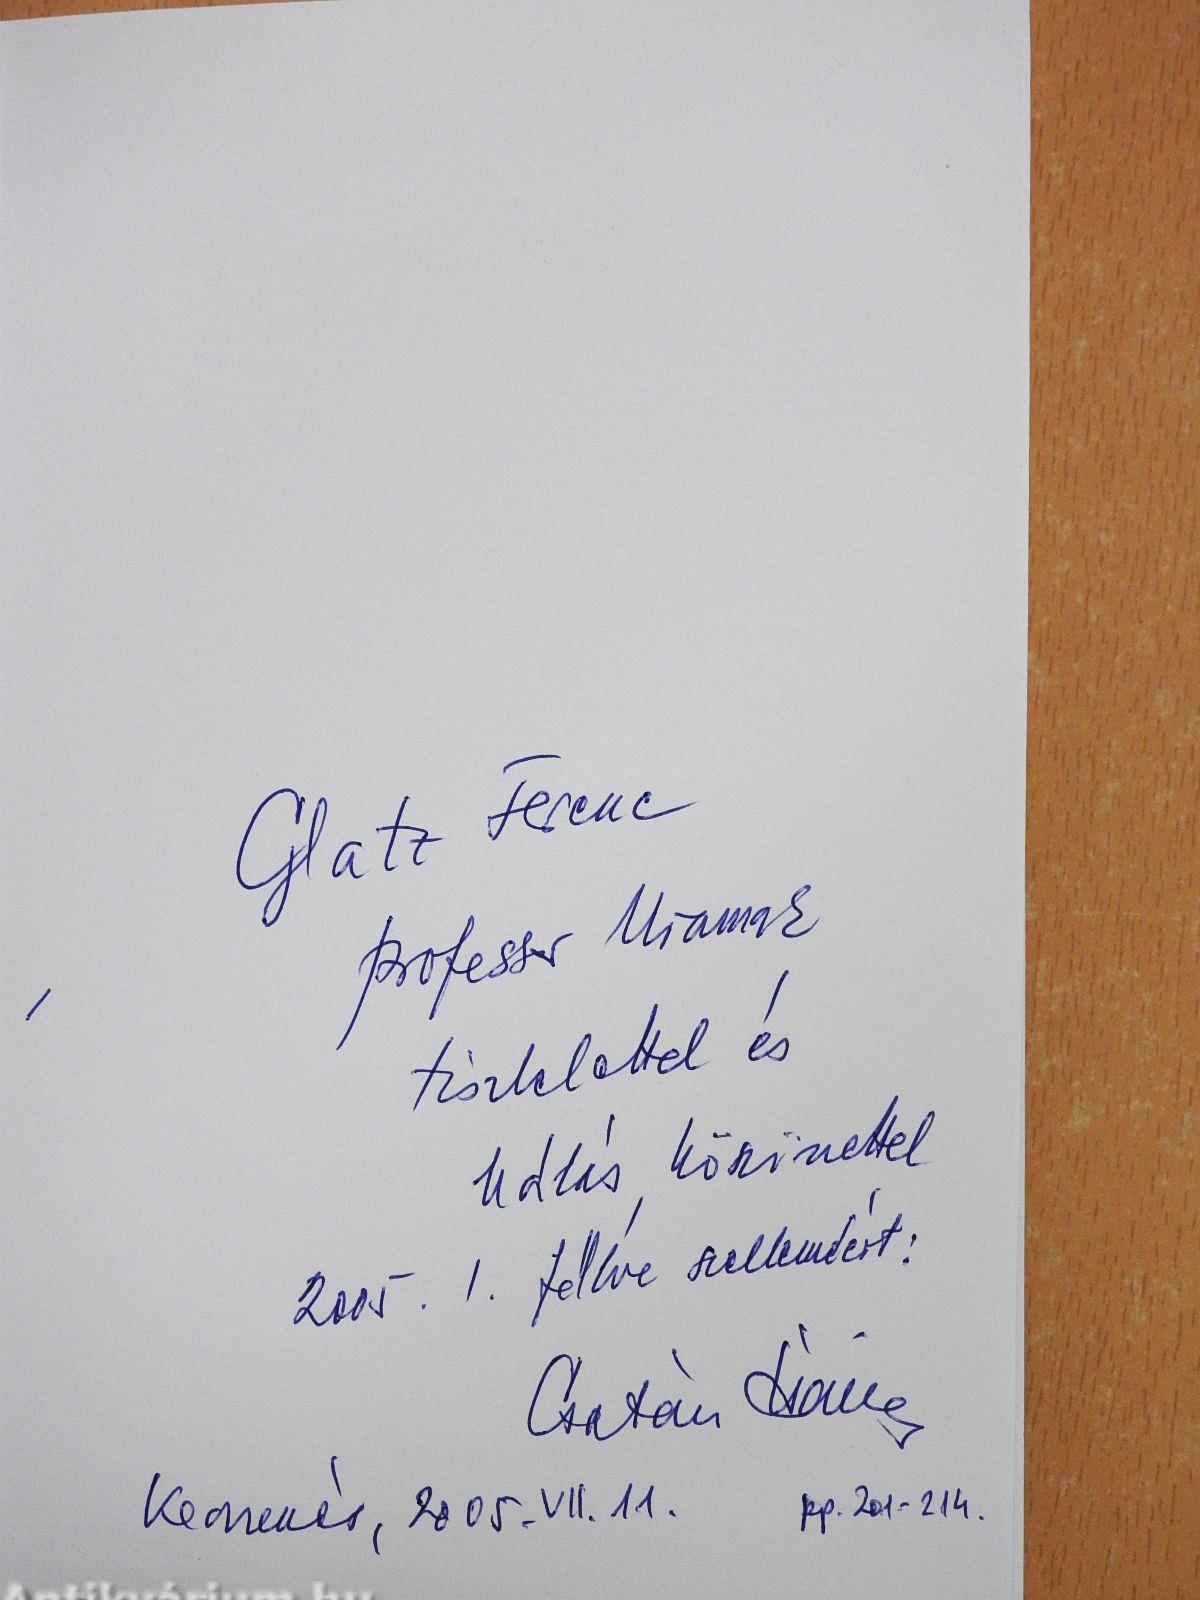 Glatz Ferenc
professor Úrnak
tisztelettel és
hálás köszönettel
2005. I. féléve szelleméért:
Csatári
Kecskemét, 2005. VII. 11.
pp. 201-214.
Antikvárium.hu